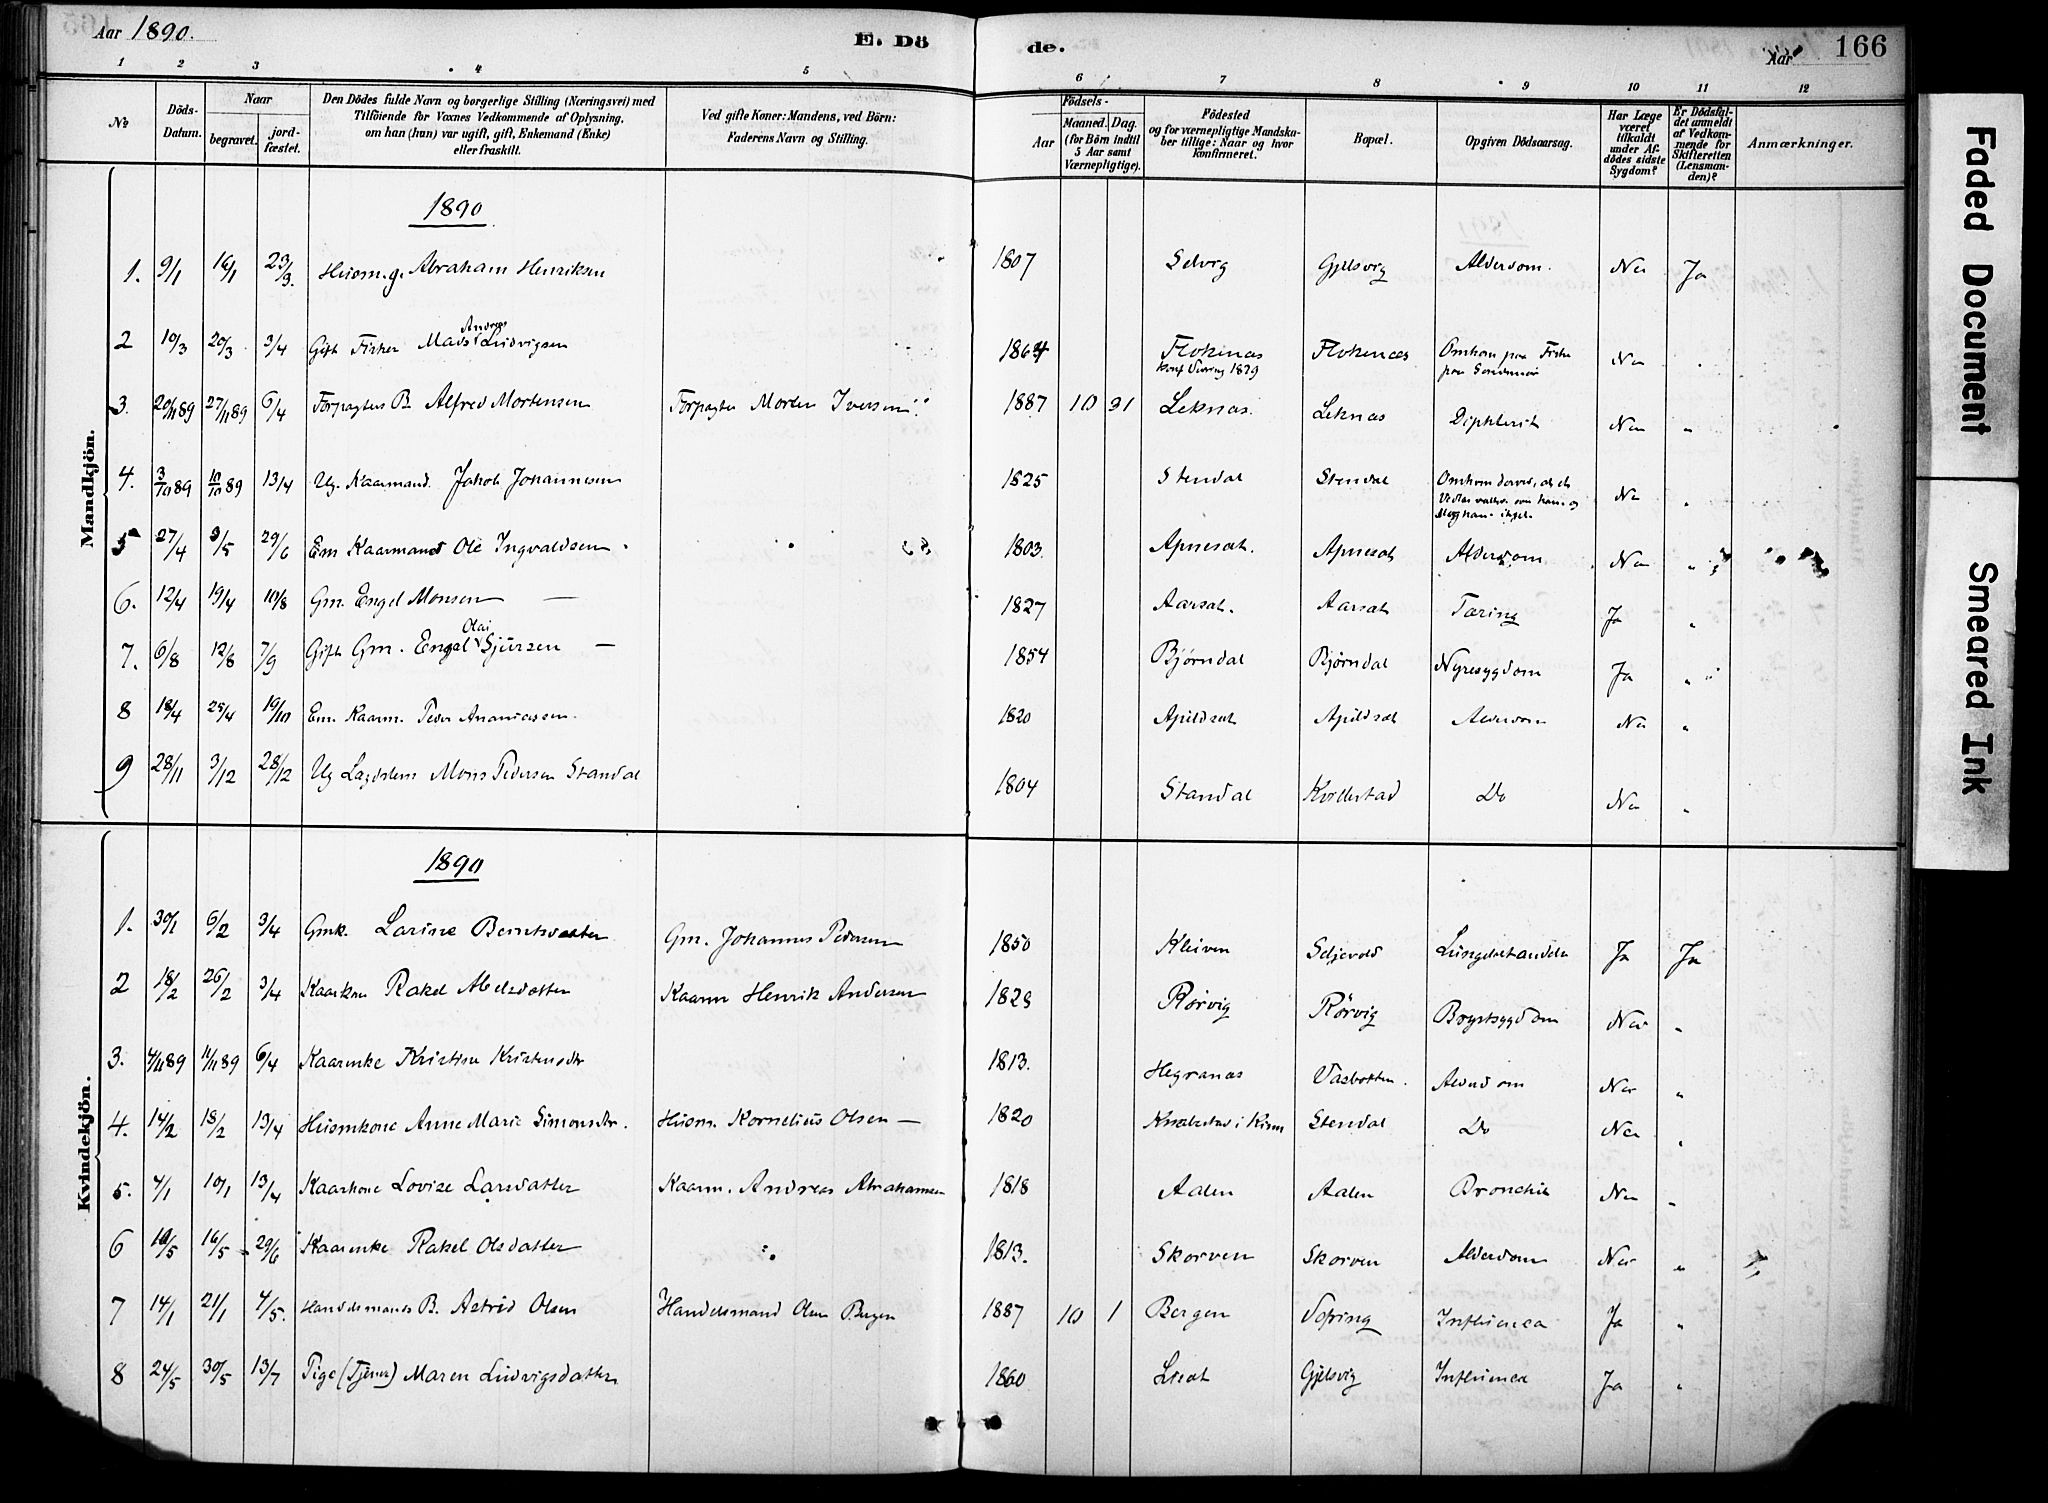 Aar 1890.
E. Dö
de.
Aar
166
1 2 3 4 5
6 7 8 9 10 11 12
No
Döds-Datum.
Naar
begravet.
jord-fæstet.
Den Dödes fulde Navn og borgerlige Stilling (Næringsvei) med
Tilföiende for Voxnes Vedkommende af Oplysning,
om han (hun) var ugift, gift, Enkemand (Enke)
eller fraskilt.
Ved gifte Koner: Mandens, ved Börn:
Faderens Navn og Stilling.
Födsels-
Aar
Maaned. Dag.
(for Börn indtil
5 Aar samt
Værnepligtige).
Födested
og for værnepligtige Mandska-
ber tillige: Naar og hvor
konfirmeret.
Bopæl.
Opgiven Dödsaarsag.
Har Læge
været
tilkaldt
under Af-
dödes sidste
Sygdom?
Er Dödsfal-
det anmeldt
af Vedkom-
mende for
Skifteretten
(Lensman-
den)?
Anmærkninger.
Mandkjön.
1890
1. 9/1 16/1 23/3. Husm.g. Abraham Henriksen 1807 Selvig Gjelsvig Alderdom. Nei Ja
2 10/3 20/3 3/4 Gift Fisker Mads Andreas Ludvigsen 1864 Flokenæs Flokenæs Omkom paa Fiske Nei
konf Vevring 1879 paa Søndmør
3. 20/11 89 27/11 89 6/4 Forpagters B. Alfred Mortensen Forpagter Morten Iversen 1887 10 31 Leknæs. Leknæs Diphterit Nei "
4. 3/10 89 10/10 89 13/4 Ug. Kaarmand. Jakob Johannesen 1825 Stendal Stendal Omkom derved, at et Nei "
5 27/4 3/5 29/6 Em Kaarmand Ole Ingvaldsen 1803. Apnesæt. Apnesæt Alderdom Nei "
6. 12/4 19/4 10/8 Gm. Engel Monsen — 1827 Aarsæt. Aarsæt Tæring Ja "
7. 6/8 12/8 7/9 Gift Gm. Engel Olai Sjursen — 1854 Bjørndal Bjørndal Nyresygdom Ja "
8 18/4 25/4 19/10 Em. Kaarm. Peder Ananiassen. 1820 Apildsæt Apildsæt Alderdom Nei "
9 28/11 3/12 28/12 Ug Lægdslem Mons Pedersen Standal 1804 Standal Kvellestad Do Nei "
Kvindekjön.
1890
1. 30/1 6/2 3/4 Gmk. Larine Berntsdatter Gm. Johannes Pedersen 1850 Kleiven Seljevold Ja Ja
2 18/2 26/2 3/4 Kaarkone Rakel Abelsdatter Kaarm Henrik Andersen 1828 Rørvig Rørvig Brystsygdom Nei "
3. 4/11 89 11/11 89 6/4 Kaarenke Kristine Kristensdtr 1813. Hegranæs Vasbotten. Alderdom Nei "
4. 14/2 18/2 13/4 Husmkone Anne Marie Simonsdtr. Husm. Kornelius Olsen — 1820 i Kinn Stendal Do Nei "
5. 4/1 10/1 13/4 Kaarkone Lovise Larsdatter Kaarm. Andreas Abrahamsen 1818 Aalen Aalen Bronchit Nei "
6 10/5 16/5 29/6 Kaarenke Rakel Olsdatter " 1813. Skorven Skorven Alderdom Nei "
7 14/1 21/1 4/5. Handelsmands B. Astrid Olsen Handelsmand Olsen Bergen 1887 10 1 Bergen Vefring Influenca Ja "
8 24/5 30/5 13/7 Pige (Tjener) Maren Ludvigsdatter 1860 Gjelsvig Influenca Ja "
Faded Document
Smeared Ink